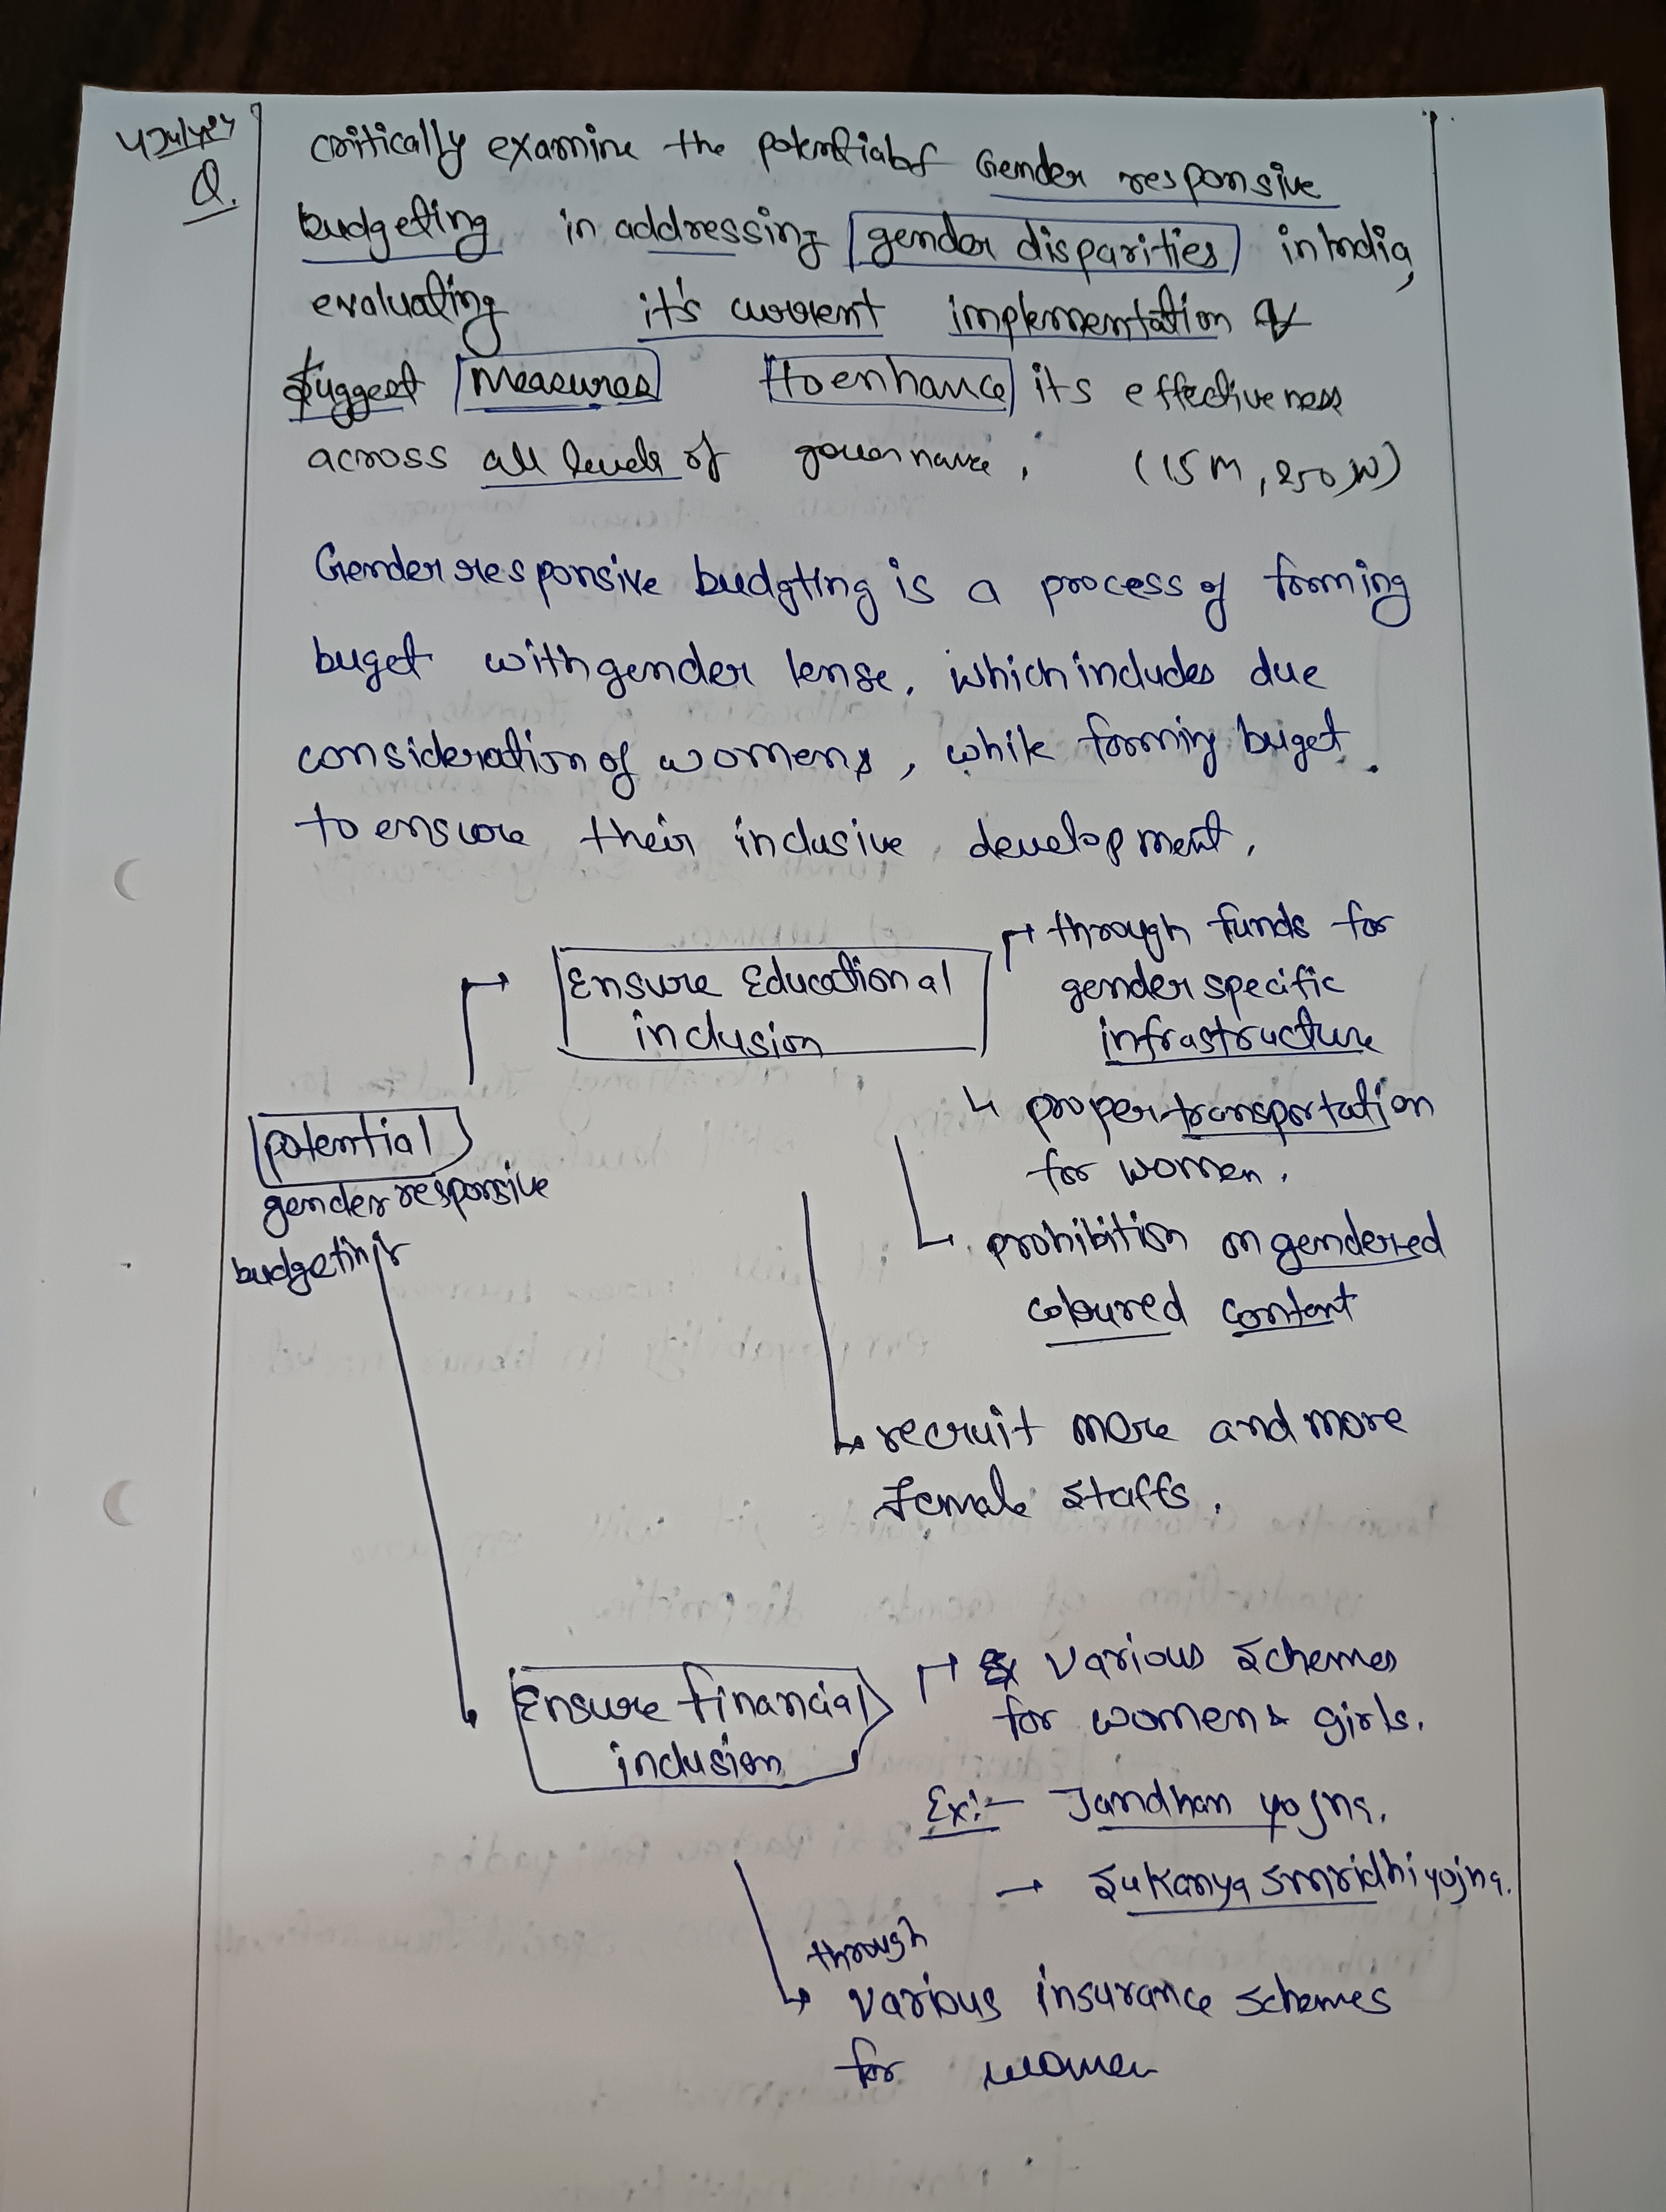 4 July 24
Q.
Critically examine the potential of Gender responsive
budgeting in addressing gender disparities in India,
evaluating it's current implementation &
suggest measures to enhance its effectiveness
across all levels of governance. (15 M, 250 W)
Gender responsive budgting is a process of forming
buget with gender lense, which includes due
consideration of womens, while forming buget
to ensure their inclusive development.
Ensure Educational
inclusion
through funds for
gender specific
infrastructure
proper transportation
for women.
prohibition on gendered
coloured content
recruit more and more
female staffs.
potential
gender responsive
budgeting
Ensure financial
inclusion
various schemes
for women & girls.
Ex:- Jandhan yojna.
→ Sukanya smridhi yojna.
through
various insurance schemes
for women